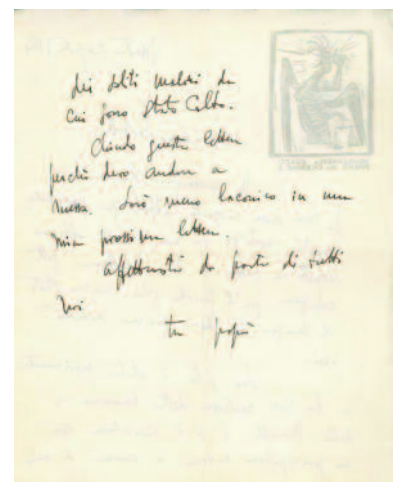 dei soliti malori da
cui sono stato colto.
Chiudo questa lettera
perché devo andare a
messa. Sarò meno laconico in una
mia prossima lettera.
affettuosità da parte di tutti
noi
tuo papà